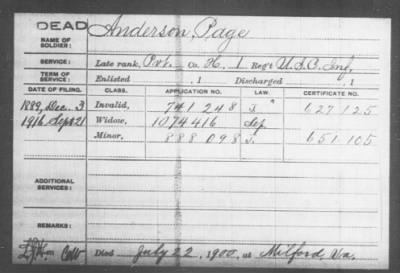 DEAD
NAME OF SOLDIER: Anderson, Page
SERVICE: Late rank, Pvt. Co. H, 1 Reg't U.S.C. Inf.
TERM OF SERVICE: Enlisted , 1 Discharged , 1
DATE OF FILING. CLASS. APPLICATION NO. LAW. CERTIFICATE NO.
1889, Dec. 3 Invalid, 741 248 J. 627 125
1916 Sept 21 Widow, 1074416 Sep.
Minor, 888 098 J. 651 105
ADDITIONAL SERVICES:
REMARKS:
Died July 22, 1900, at Milford, Va.